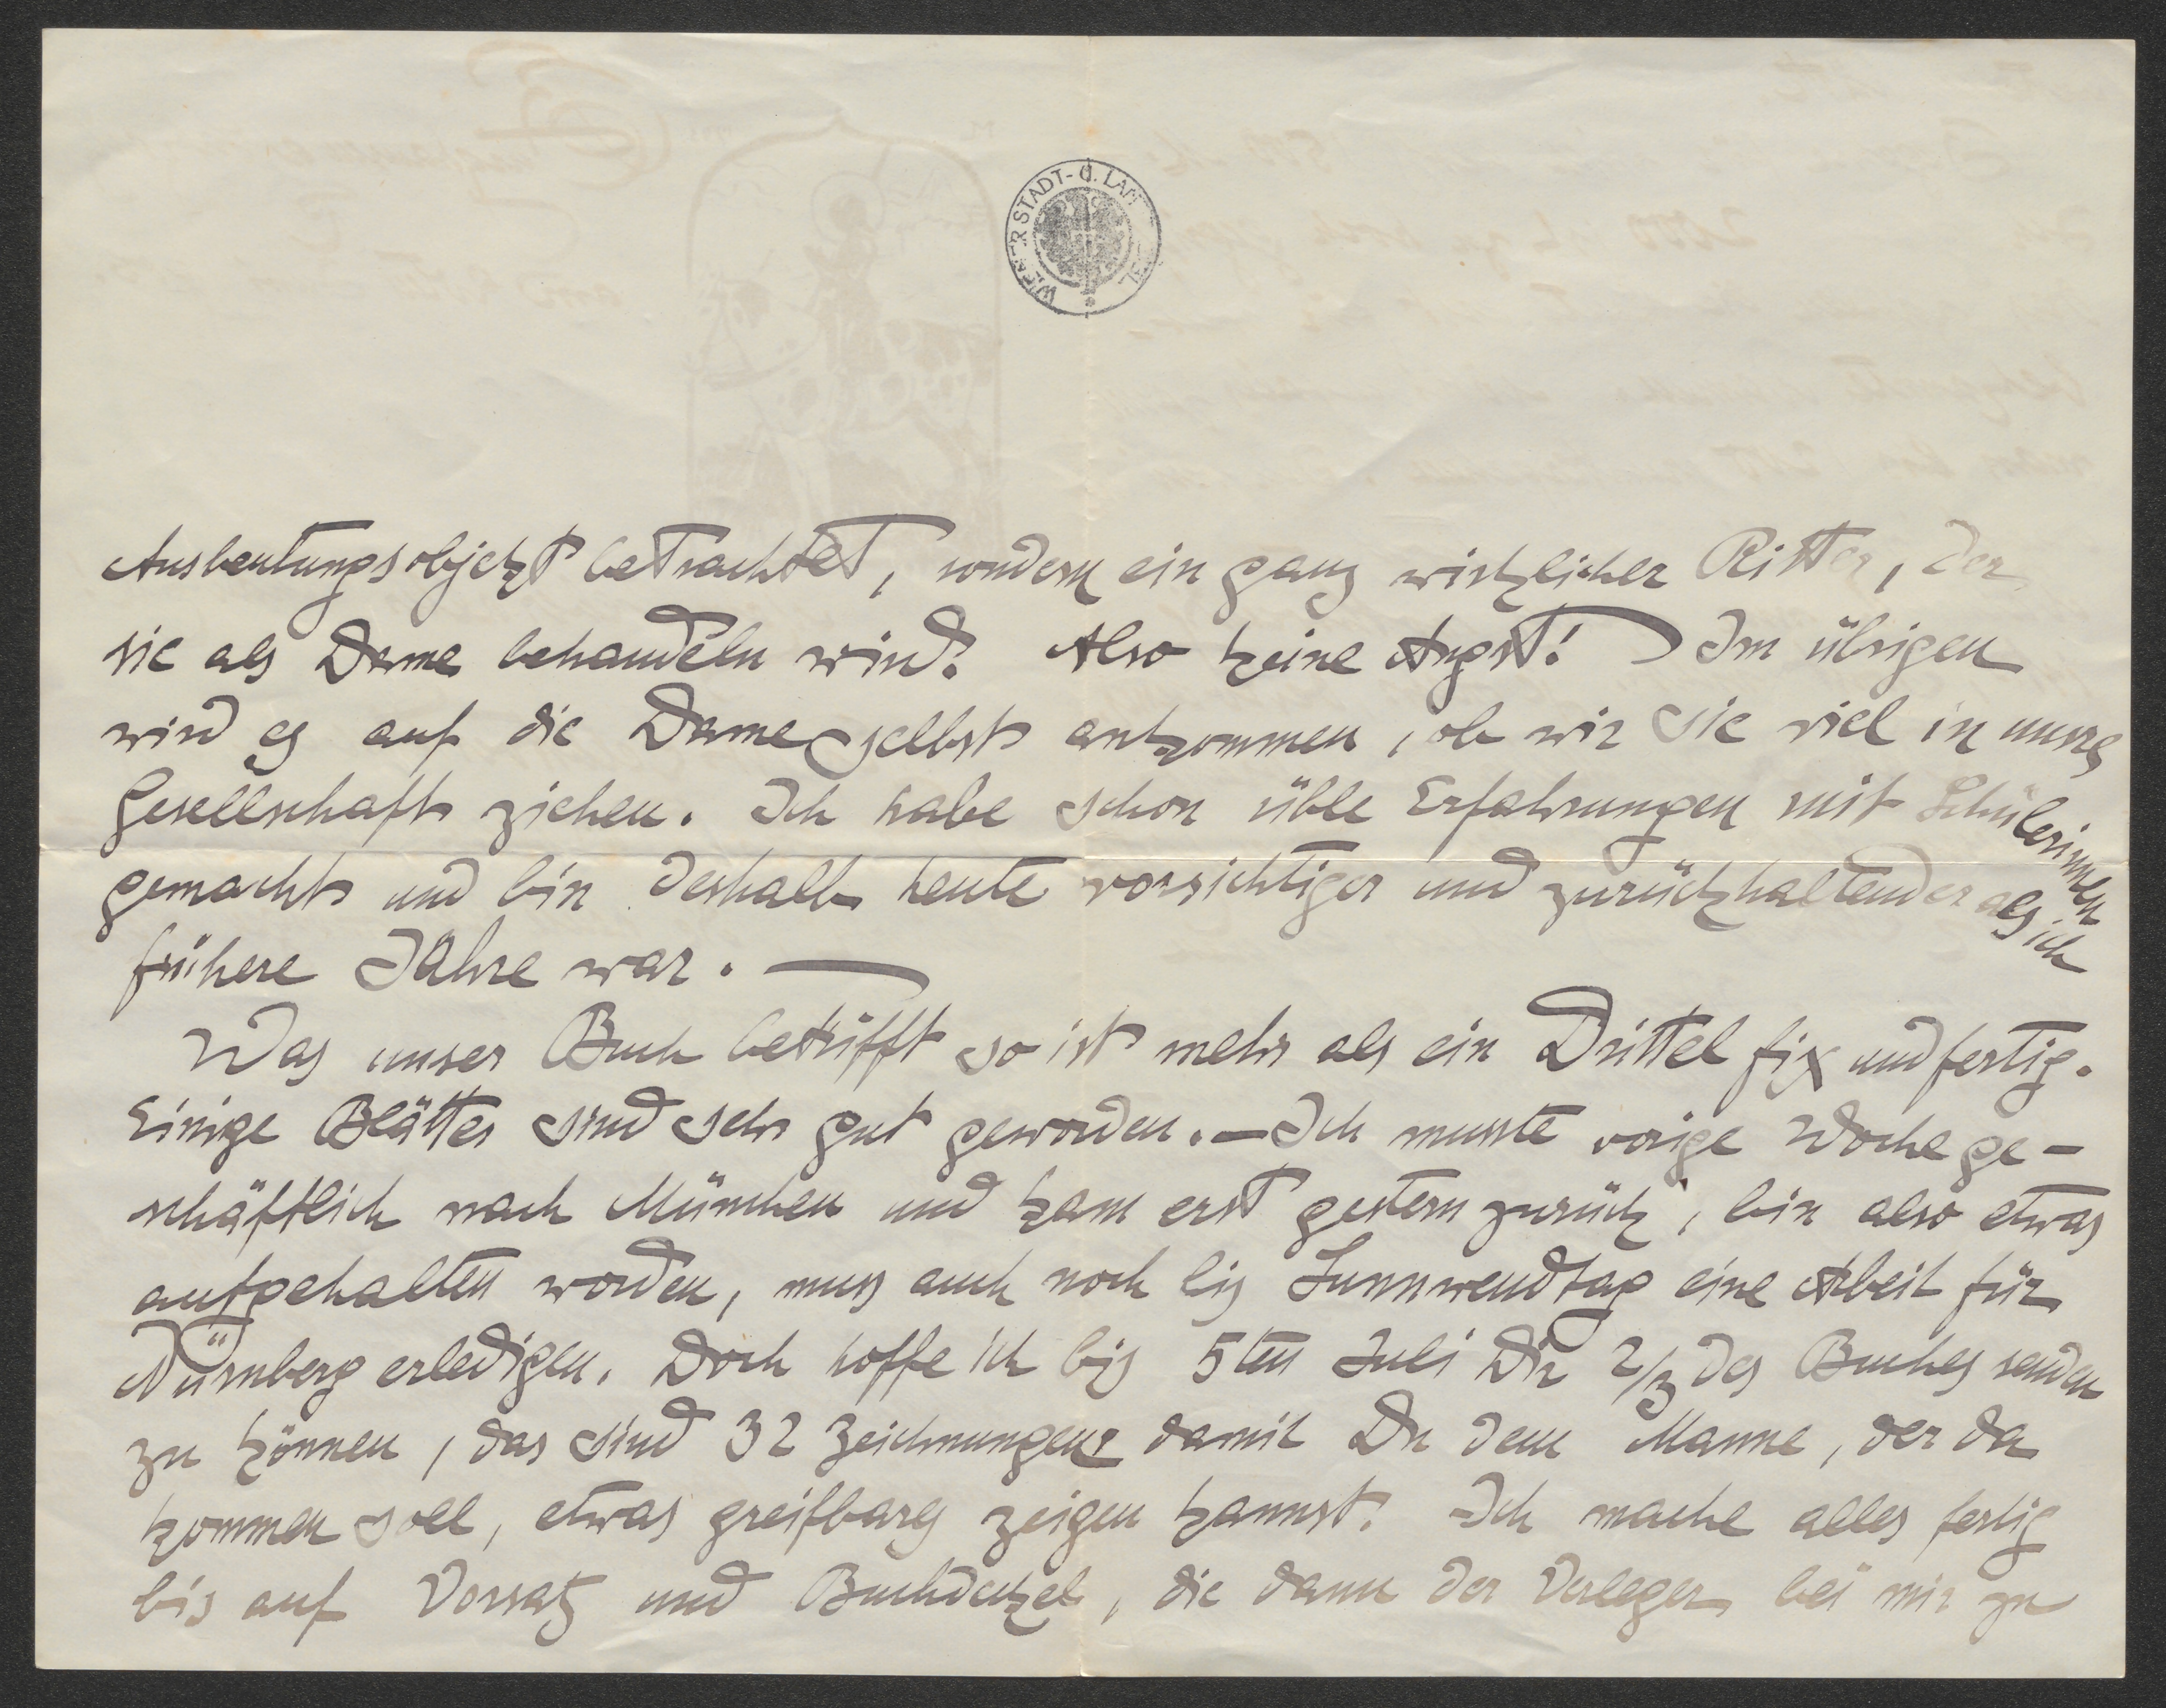 WIENER STADT- U. LAN
Ausbeutungsobjekt betrachtet, sondern ein ganz wirklicher Ritter, der
sie als Dame behandeln wird. Also keine Angst! Im übrigen
wird es auf die Dame selbst ankommen, ob wir sie viel in unsre
Gesellschaft ziehen. Ich habe schon üble Erfahrungen mit Schülerinnen
gemacht und bin deshalb heute vorsichtiger und zurückhaltender als ich
frühere Jahre war. —
Was unser Buch betrifft so ist mehr als ein Drittel fix und fertig.
Einige Blätter sind sehr gut geworden. — Ich musste vorige Woche ge-
schäftlich nach München und kam erst gestern zurück, bin also etwas
aufgehalten worden, muss auch noch bis Sunnwendtag eine Arbeit für
Nürnberg erledigen. Doch hoffe ich bis 5ten Juli Dir 2/3 des Buches senden
zu können, das sind 32 Zeichnungen damit Du dem Manne, der da
kommen soll, etwas greifbares zeigen kannst. Ich mache alles fertig
bis auf Vorsatz und Buchdeckel, die dann der Verleger bei mir zu